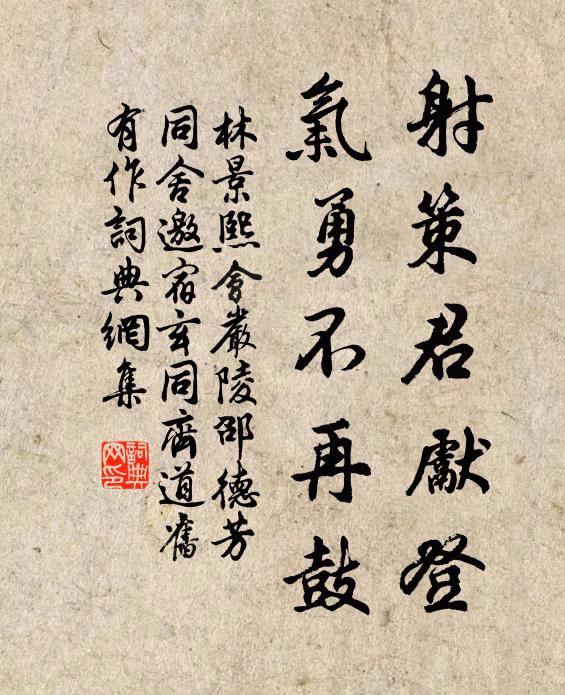 射策君獻登
氣勇不再鼓
林景熙會嚴陵邵德芳
同舍邀宿玄同齊道舊
有作詞典網集
詞典
网印